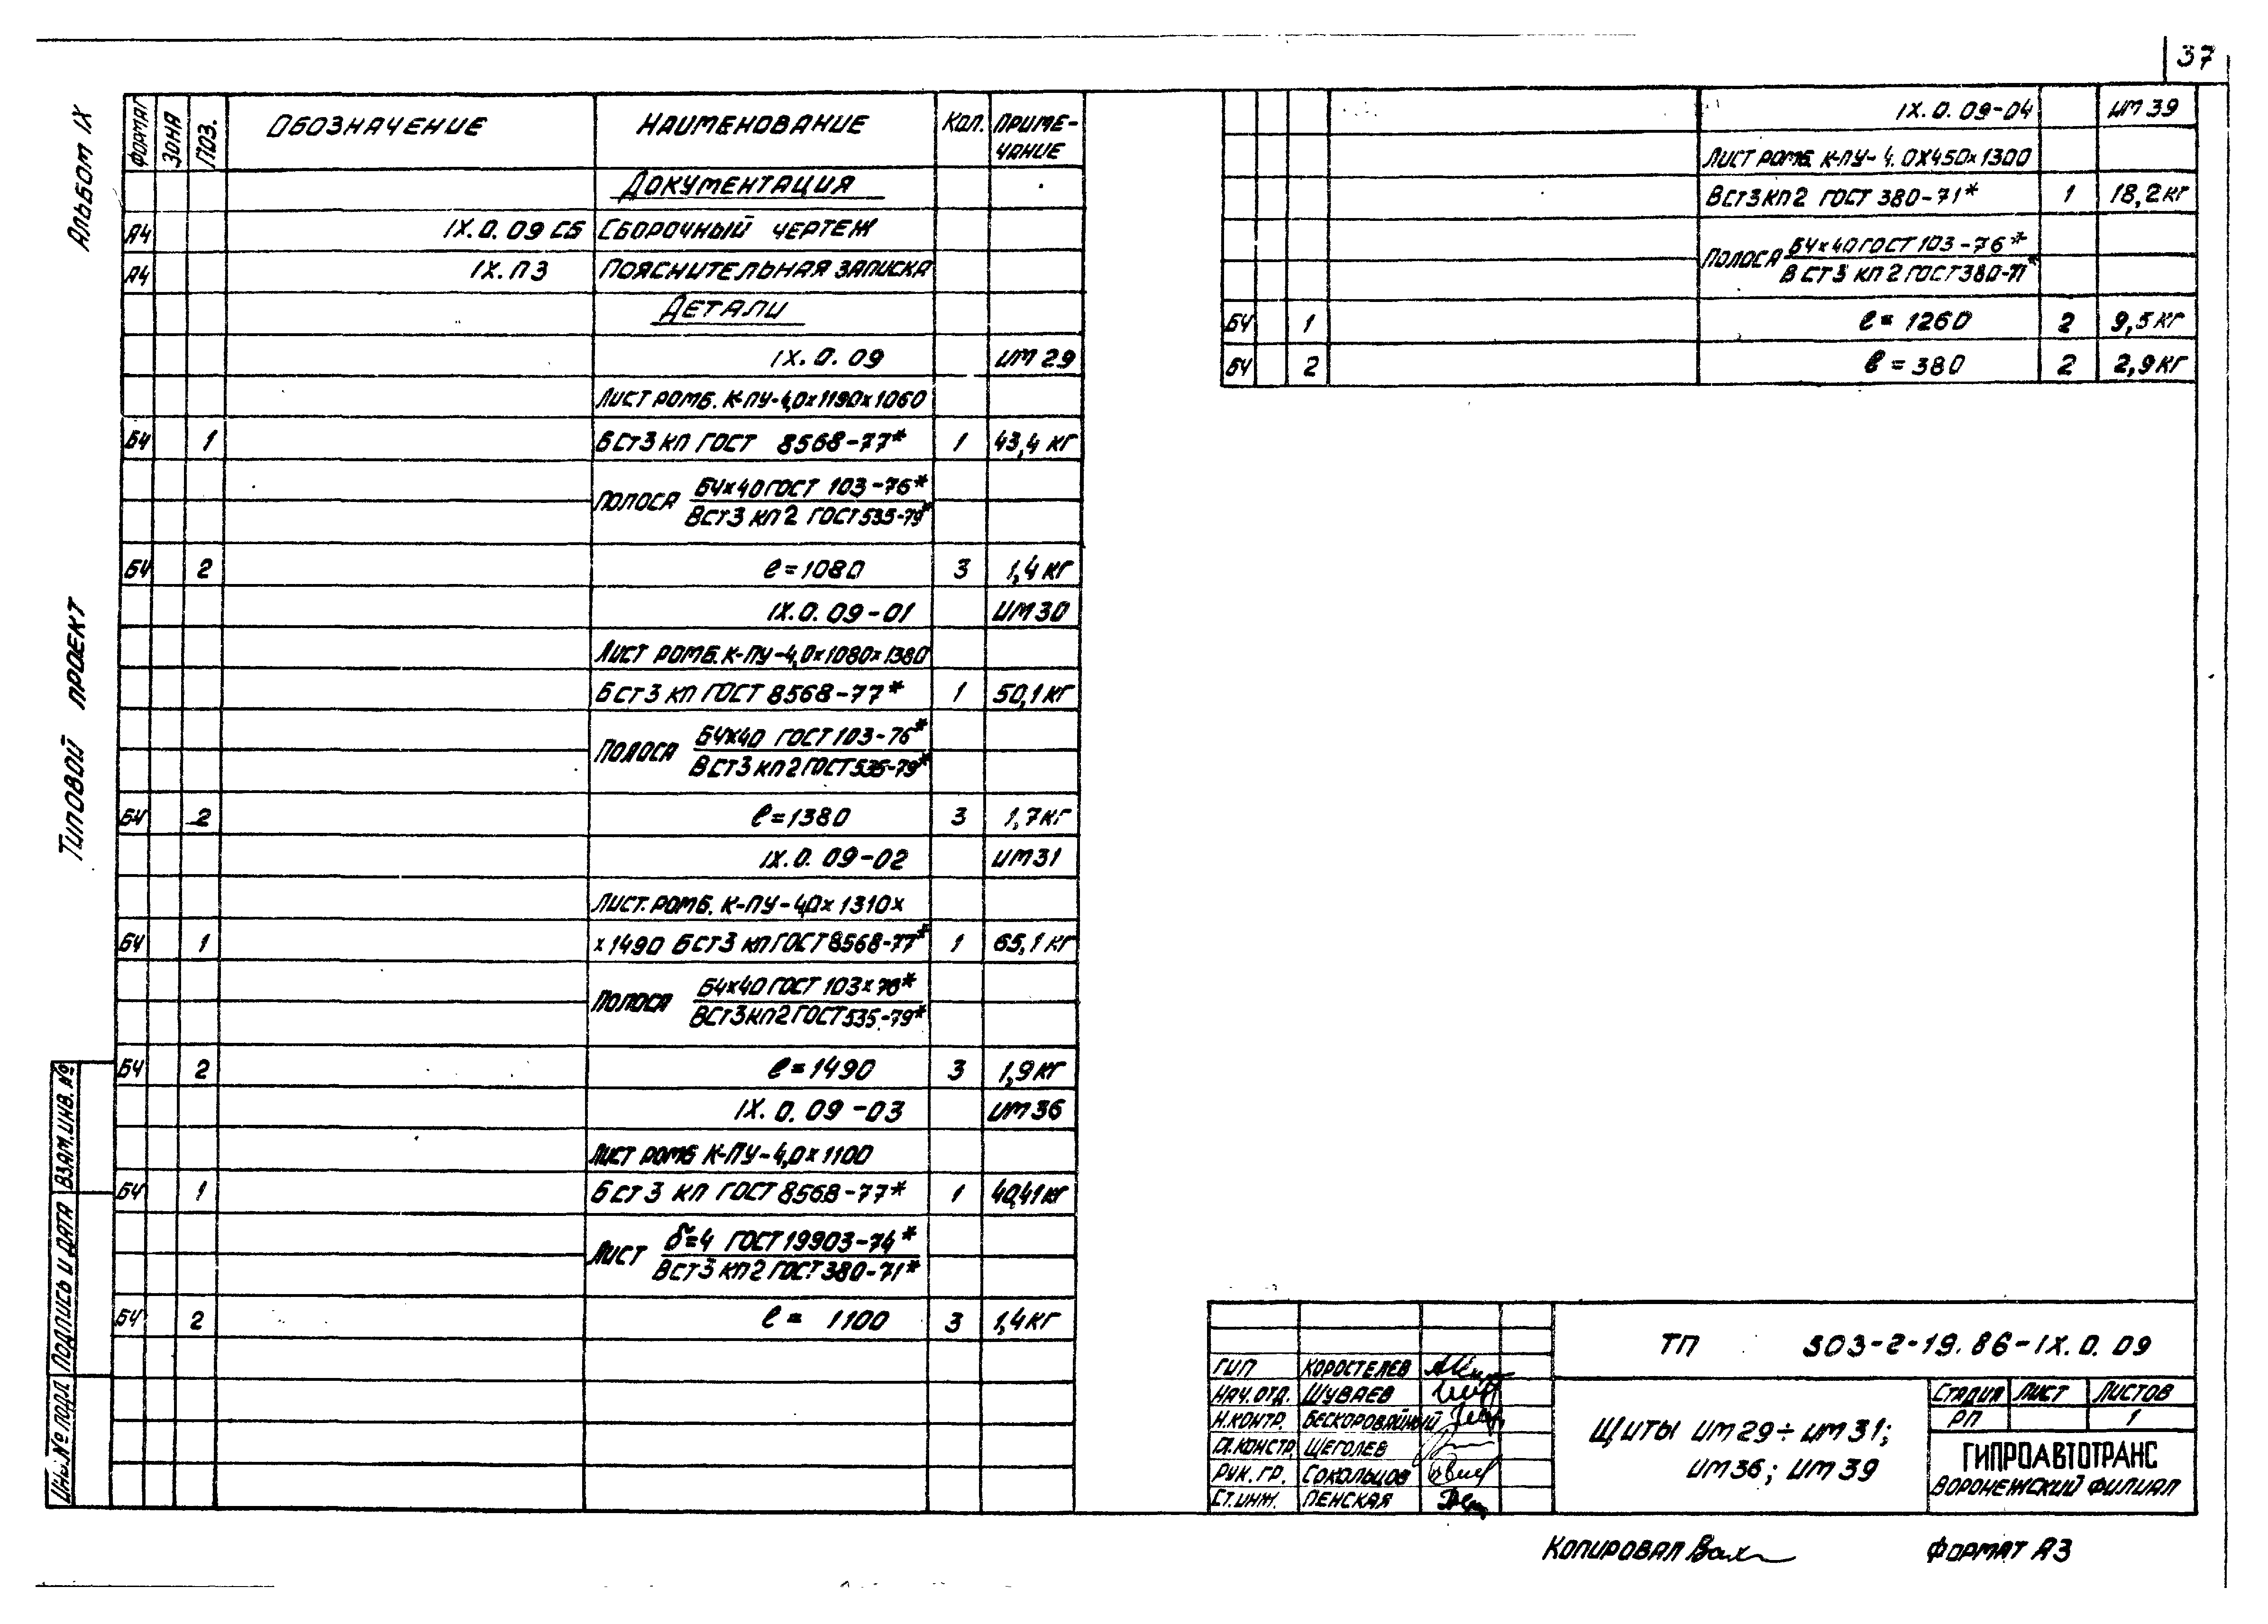 37
Альбом IX
Типовой проект
Формат Зона Поз. Обозначение Наименование Кол. Примечание
Документация
А4 IX.0.09 СБ Сборочный чертеж
А4 IX.ПЗ Пояснительная записка
Детали
IX.0.09 им 29
Лист ромб. К-ПУ-4,0х1190х1060
БЧ 1 БСт3кп ГОСТ 8568-77* 1 43,4 кг
Полоса Б4х40 ГОСТ 103-76*
ВСт3 кп2 ГОСТ 535-79*
БЧ 2 ℓ=1080 3 1,4 кг
IX.0.09-01 им 30
Лист ромб. К-ПУ-4,0х1080х1380
БСт3 кп ГОСТ 8568-77* 1 50,1 кг
Полоса Б4х40 ГОСТ 103-76*
ВСт3 кп2 ГОСТ 535-79*
БЧ 2 ℓ=1380 3 1,7 кг
IX.0.09-02 им 31
Лист. ромб. К-ПУ-4,0х1310х
БЧ 1 х1490 БСт3 кп ГОСТ 8568-77* 1 65,1 кг
Полоса Б4х40 ГОСТ 103х76*
ВСт3кп2 ГОСТ 535-79*
БЧ 2 ℓ=1490 3 1,9 кг
IX.0.09-03 им 36
Лист ромб К-ПУ-4,0х1100
БЧ 1 БСт3 кп ГОСТ 8568-77* 1 40,41 кг
Лист δ=4 ГОСТ 19903-74*
ВСт3 кп2 ГОСТ 380-71*
БЧ 2 ℓ= 1100 3 1,4 кг
IX.0.09-04 им 39
Лист ромб. К-ПУ-4.0х450х1300
ВСт3кп2 ГОСТ 380-71* 1 18,2 кг
Полоса Б4х40 ГОСТ 103-76*
ВСт3 кп2 ГОСТ 380-71*
БЧ 1 ℓ= 1260 2 9,5 кг
БЧ 2 ℓ=380 2 2,9 кг
Взам. инв. №
Подпись и дата
Инв. № подл
ТП 503-2-19.86-IX.0.09
ГИП Коростелев
Нач. отд. Шуваев
Н.контр. Бескоровайный
Гл.констр. Щеголев
Рук. гр. Сокольцов
Ст. инж. Пенская
Щиты им 29÷им 31;
им 36; им 39
Стадия Лист Листов
РП 1
ГИПРОАВТОТРАНС
Воронежский филиал
Копировал
Формат А3